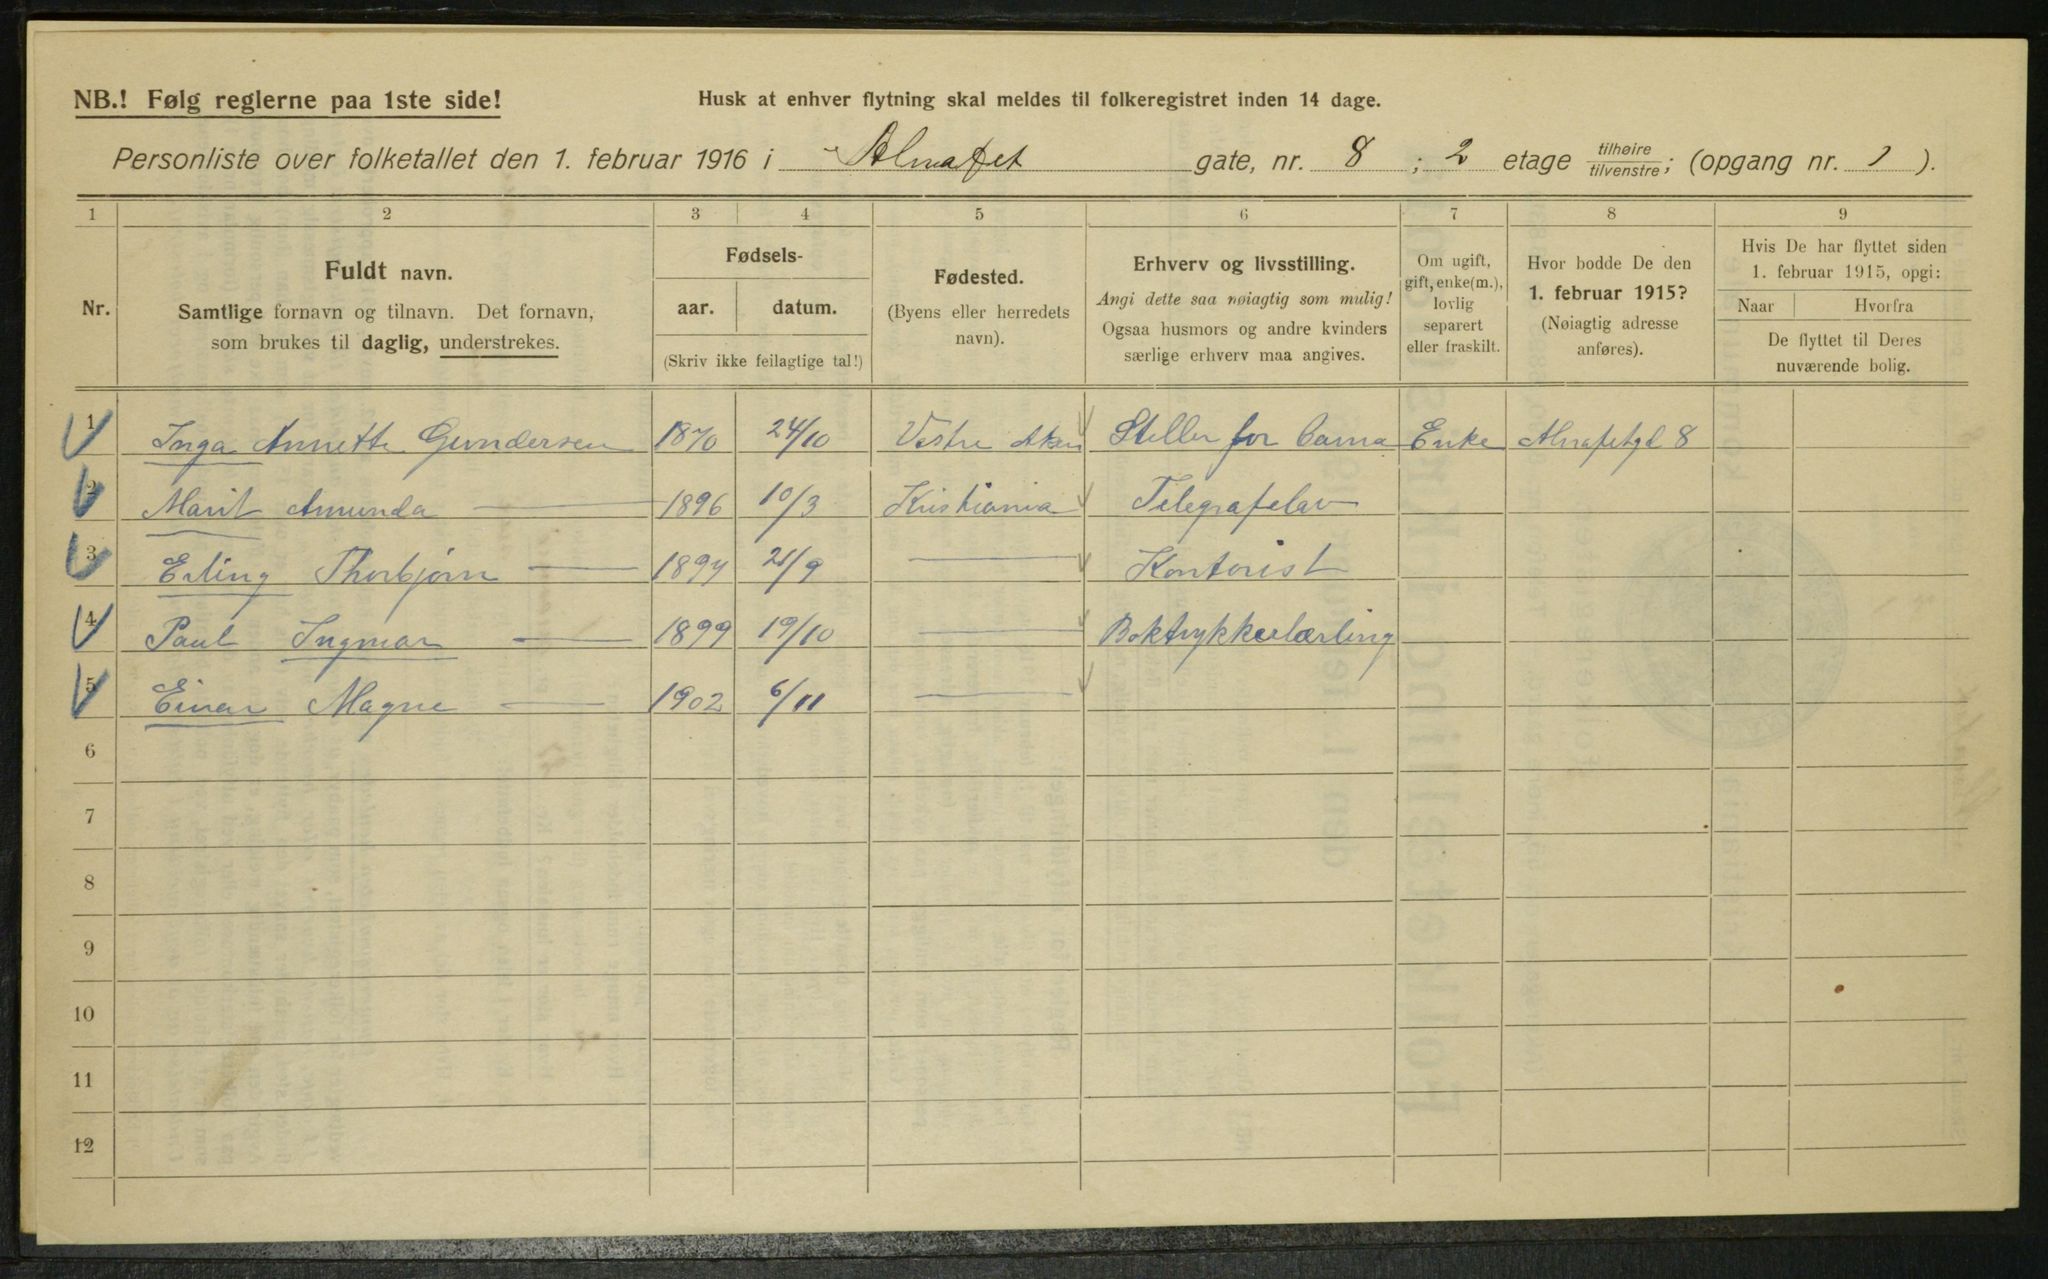 NB.! Følg reglerne paa 1ste side!
Husk at enhver flytning skal meldes til folkeregistret inden 14 dage.
Personliste over folketallet den 1. februar 1916 i Almafet gate, nr. 8 ; 2 etage tilhøire/tilvenstre; (opgang nr. 1 ).
1 2 3 4 5 6 7 8 9
Nr.
Fuldt navn.
Samtlige fornavn og tilnavn. Det fornavn,
som brukes til daglig, understrekes.
Fødsels-
aar. datum.
(Skriv ikke feilagtige tal!)
Fødested.
(Byens eller herredets
navn).
Erhverv og livsstilling.
Angi dette saa nøiagtig som mulig!
Ogsaa husmors og andre kvinders
særlige erhverv maa angives.
Om ugift,
gift, enke(m.),
lovlig
separert
eller fraskilt.
Hvor bodde De den
1. februar 1915?
(Nøiagtig adresse
anføres).
Hvis De har flyttet siden
1. februar 1915, opgi:
Naar Hvorfra
De flyttet til Deres
nuværende bolig.
1 Inga Annette Gundersen 1870 24/10 Vestre Aker Steller for barna Enke Almafetgd 8
2 Marit Amunda — 1896 10/3 Kristiania Telegrafelev
3 Erling Thorbjørn — 1897 21/9 — Kontorist
4 Paul Ingmar — 1899 19/10 — Boktrykkerlærling
5 Einar Magne — 1902 6/11 —
6
7
8
9
10
11
12